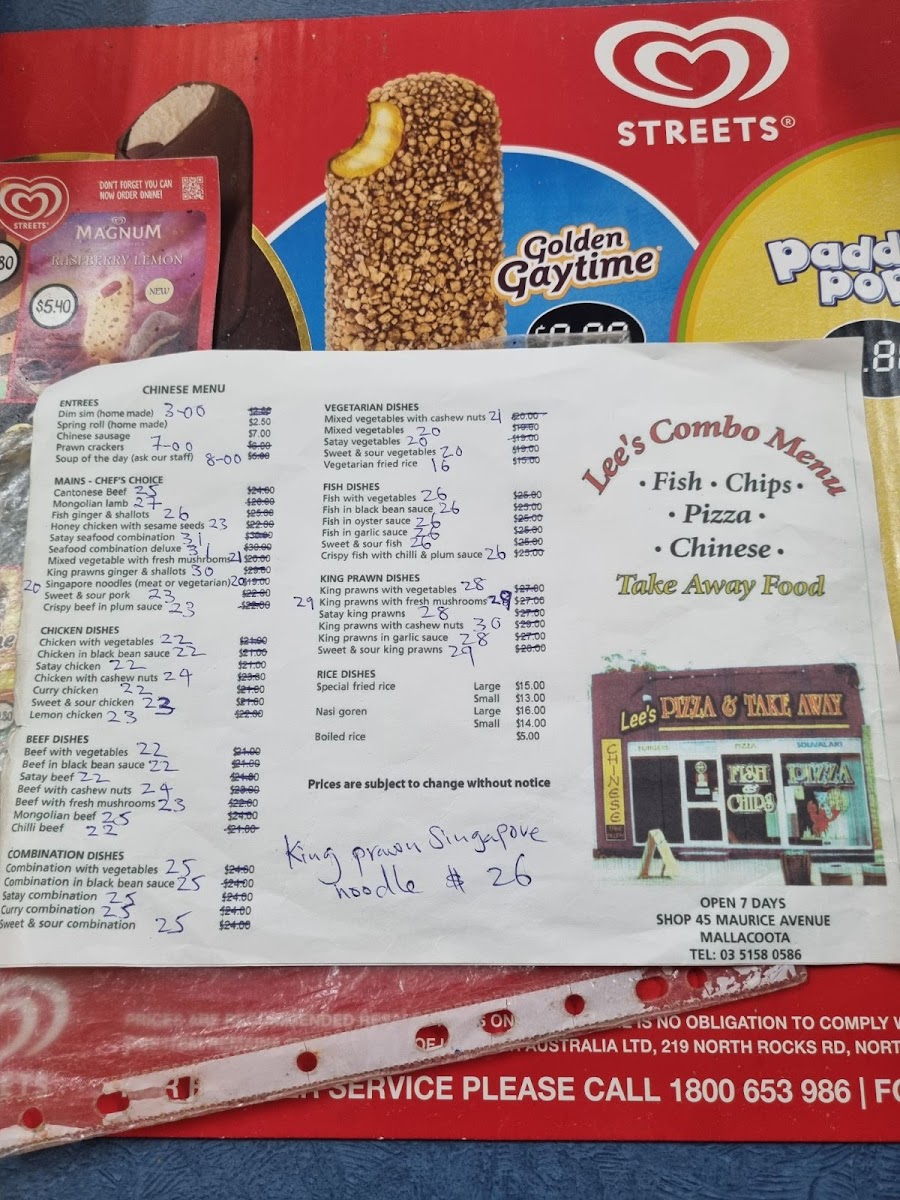 STREETS®
'DON'T FORGET YOU CAN
NOW ORDER ONLINE!
STREETS
MAGNUM
RASPBERRY LEMON
NEW
$5.40
80
Golden
Gaytime
Padd
Pop
.8
CHINESE MENU
ENTREES
Dim sim (home made) 3-00
Spring roll (home made) $2.50
Chinese sausage $7.00
Prawn crackers 7-00 $6.00
Soup of the day (ask our staff) 8-00 $6.00
MAINS - CHEF'S CHOICE
Cantonese Beef 25 $24.00
Mongolian lamb 27 $26.00
Fish ginger & shallots 26 $25.00
Honey chicken with sesame seeds 23 $22.00
Satay seafood combination 31 $30.00
Seafood combination deluxe 31 $30.00
Mixed vegetable with fresh mushrooms 21 $20.00
King prawns ginger & shallots 30 $29.00
20 Singapore noodles (meat or vegetarian) 20 $19.00
Sweet & sour pork 23 $22.00
Crispy beef in plum sauce 23 $22.00
CHICKEN DISHES
Chicken with vegetables 22 $21.00
Chicken in black bean sauce 22 $21.00
Satay chicken 22 $21.00
Chicken with cashew nuts 24 $23.00
Curry chicken 22 $21.00
Sweet & sour chicken 23 $21.00
Lemon chicken 23 $22.00
BEEF DISHES
Beef with vegetables 22 $21.00
Beef in black bean sauce 22 $21.00
Satay beef 22 $21.00
Beef with cashew nuts 24 $23.00
Beef with fresh mushrooms 23 $22.00
Mongolian beef 25 $24.00
Chilli beef 22 $21.00
COMBINATION DISHES
Combination with vegetables 25 $24.00
Combination in black bean sauce 25 $24.00
Satay combination 25 $24.00
Curry combination 25 $24.00
Sweet & sour combination 25 $24.00
VEGETARIAN DISHES
Mixed vegetables with cashew nuts 21 $20.00
Mixed vegetables 20 $19.00
Satay vegetables 20 $19.00
Sweet & sour vegetables 20 $19.00
Vegetarian fried rice 16 $15.00
FISH DISHES
Fish with vegetables 26 $25.00
Fish in black bean sauce 26 $25.00
Fish in oyster sauce 26 $25.00
Fish in garlic sauce 26 $25.00
Sweet & sour fish 26 $25.00
Crispy fish with chilli & plum sauce 26 $25.00
KING PRAWN DISHES
King prawns with vegetables 28 $27.00
29 King prawns with fresh mushrooms 29 $27.00
Satay king prawns 28 $27.00
King prawns with cashew nuts 30 $29.00
King prawns in garlic sauce 28 $27.00
Sweet & sour king prawns 29 $28.00
RICE DISHES
Special fried rice Large $15.00
Small $13.00
Nasi goren Large $16.00
Small $14.00
Boiled rice $5.00
Prices are subject to change without notice
King prawn Singapore
noodle $ 26
Lee's Combo Menu
• Fish • Chips •
• Pizza •
• Chinese •
Take Away Food
Lee's PIZZA & TAKE AWAY
CHINESE
BURGERS
PIZZA
SOUVALAKI
FISH
&
CHIPS
PIZZA
OPEN 7 DAYS
SHOP 45 MAURICE AVENUE
MALLACOOTA
TEL: 03 5158 0586
IS NO OBLIGATION TO COMPLY
AUSTRALIA LTD, 219 NORTH ROCKS RD, NORT
SERVICE PLEASE CALL 1800 653 986 | FO